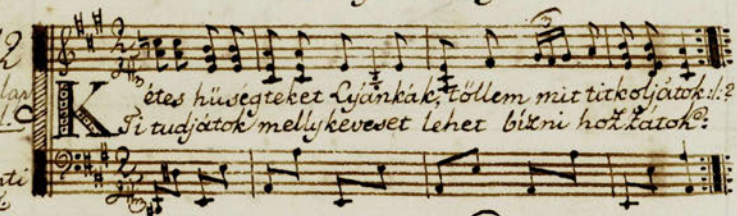 12
Kétes hűségteket Lyánkák, tőllem mit titkoljátok :/: ?
Ti tudjátok melly keveset lehet bízni hozzátok :